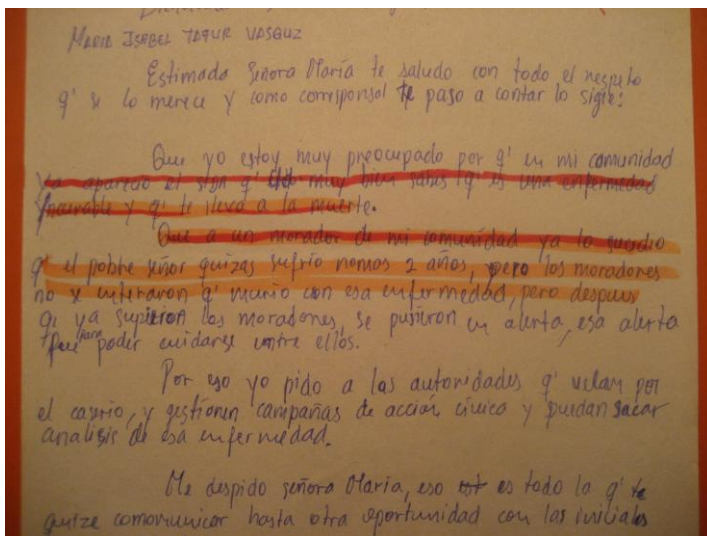 MARIA ISABEL TAFUR VASQUZ
Estimada Señora María te saludo con todo el respeto
q' se lo merece y como corresponsal te paso a contar lo sigte:
Que yo estoy muy preocupado por q' en mi comunidad
ya aparecio el sida q' muy bien sabes q' es una enfermedad
incurable y q' te lleva a la muerte.
Que a un morador de mi comunidad ya lo sucedio
q' el pobre señor quizas sufrio nomas 2 años, pero los moradores
no se enteraron q' murio con esa enfermedad, pero despues
q' ya supieron los moradores, se pusieron en alerta, esa alerta
fue para poder cuidarse entre ellos.
Por eso yo pido a las autoridades q' velan por
el caserio, y gestionen campañas de acción cívica y puedan sacar
analisis de esa enfermedad.
Me despido señora Maria, eso es todo lo q' te
quize comonunicar hasta otra oportunidad con las iniciales